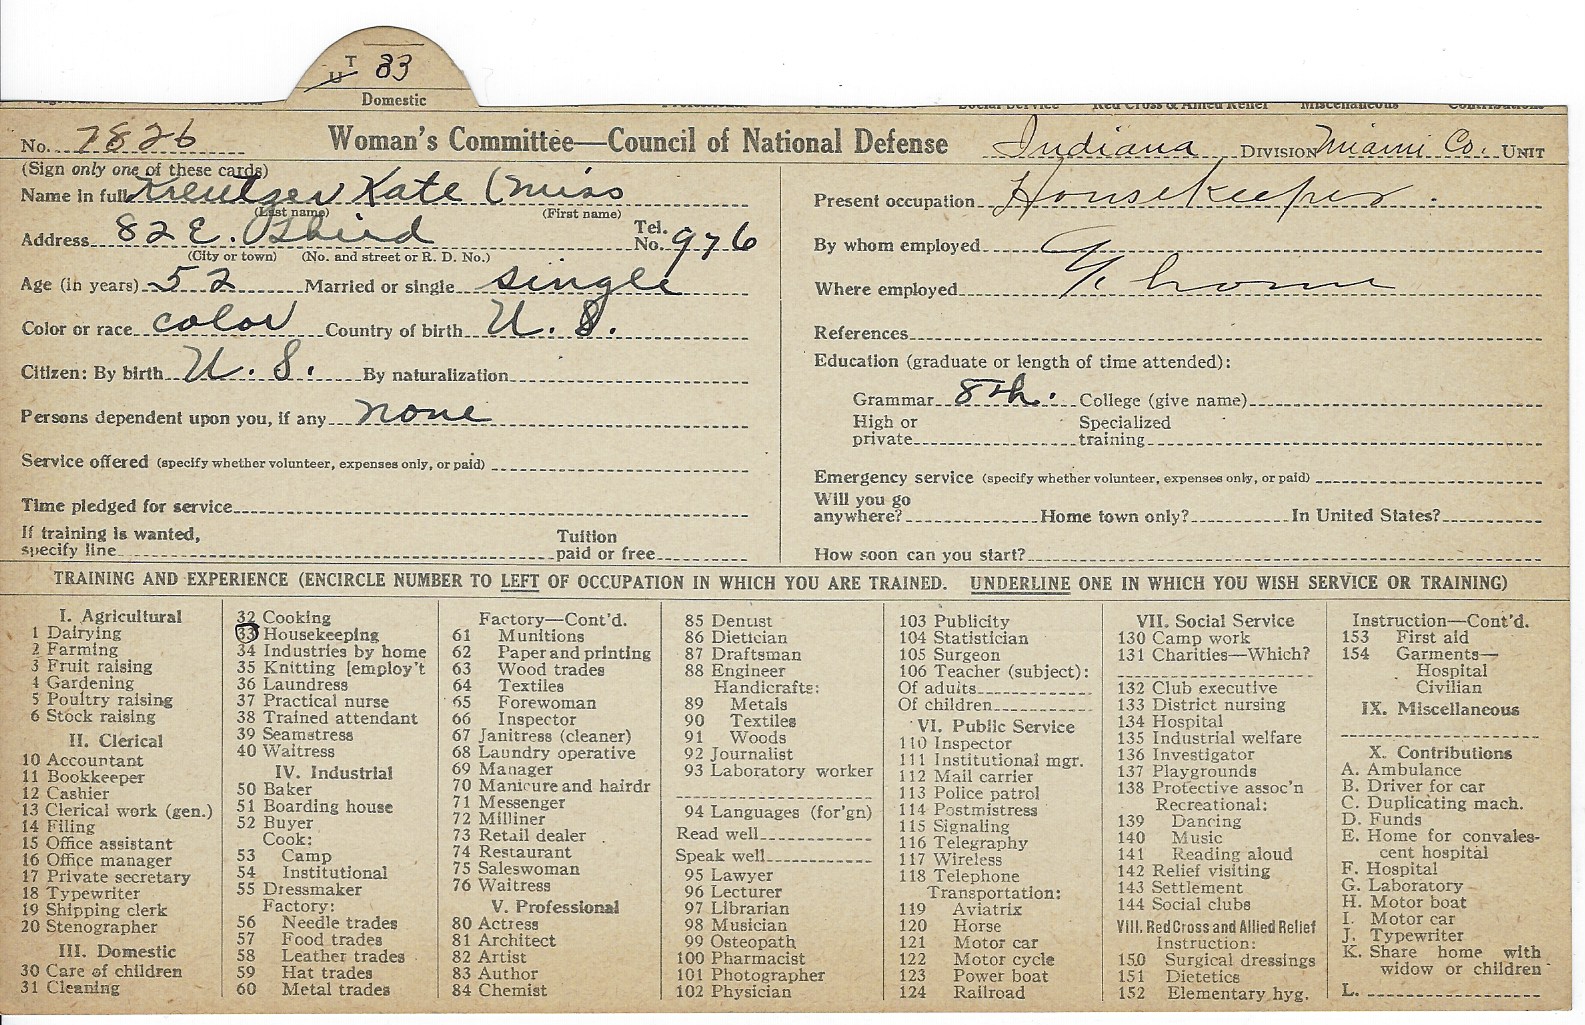 U T 33
Domestic
Social Service Red Cross & Allied Relief Miscellaneous Contributions
No. 7826 Woman's Committee—Council of National Defense Indiana DIVISION Miami Co. UNIT
(Sign only one of these cards)
Name in full Kreutzer Kate (Miss
(Last name) (First name)
Address 82 E. Third Tel. No. 976
(City or town) (No. and street or R. D. No.)
Age (in years) 52 Married or single single
Color or race color Country of birth U. S.
Citizen: By birth U. S. By naturalization
Persons dependent upon you, if any none
Service offered (specify whether volunteer, expenses only, or paid)
Time pledged for service
If training is wanted,
specify line Tuition paid or free
Present occupation Housekeeper.
By whom employed
Where employed home
References
Education (graduate or length of time attended):
Grammar 8th. College (give name)
High or private Specialized training
Emergency service (specify whether volunteer, expenses only, or paid)
Will you go
anywhere? Home town only? In United States?
How soon can you start?
TRAINING AND EXPERIENCE (ENCIRCLE NUMBER TO LEFT OF OCCUPATION IN WHICH YOU ARE TRAINED. UNDERLINE ONE IN WHICH YOU WISH SERVICE OR TRAINING)
I. Agricultural
1 Dairying
2 Farming
3 Fruit raising
4 Gardening
5 Poultry raising
6 Stock raising
II. Clerical
10 Accountant
11 Bookkeeper
12 Cashier
13 Clerical work (gen.)
14 Filing
15 Office assistant
16 Office manager
17 Private secretary
18 Typewriter
19 Shipping clerk
20 Stenographer
III. Domestic
30 Care of children
31 Cleaning
32 Cooking
33 Housekeeping
34 Industries by home
35 Knitting [employ't
36 Laundress
37 Practical nurse
38 Trained attendant
39 Seamstress
40 Waitress
IV. Industrial
50 Baker
51 Boarding house
52 Buyer
Cook:
53 Camp
54 Institutional
55 Dressmaker
Factory:
56 Needle trades
57 Food trades
58 Leather trades
59 Hat trades
60 Metal trades
Factory—Cont'd.
61 Munitions
62 Paper and printing
63 Wood trades
64 Textiles
65 Forewoman
66 Inspector
67 Janitress (cleaner)
68 Laundry operative
69 Manager
70 Manicure and hairdr
71 Messenger
72 Milliner
73 Retail dealer
74 Restaurant
75 Saleswoman
76 Waitress
V. Professional
80 Actress
81 Architect
82 Artist
83 Author
84 Chemist
85 Dentist
86 Dietician
87 Draftsman
88 Engineer
Handicrafts:
89 Metals
90 Textiles
91 Woods
92 Journalist
93 Laboratory worker
94 Languages (for'gn)
Read well
Speak well
95 Lawyer
96 Lecturer
97 Librarian
98 Musician
99 Osteopath
100 Pharmacist
101 Photographer
102 Physician
103 Publicity
104 Statistician
105 Surgeon
106 Teacher (subject):
Of adults
Of children
VI. Public Service
110 Inspector
111 Institutional mgr.
112 Mail carrier
113 Police patrol
114 Postmistress
115 Signaling
116 Telegraphy
117 Wireless
118 Telephone
Transportation:
119 Aviatrix
120 Horse
121 Motor car
122 Motor cycle
123 Power boat
124 Railroad
VII. Social Service
130 Camp work
131 Charities—Which?
132 Club executive
133 District nursing
134 Hospital
135 Industrial welfare
136 Investigator
137 Playgrounds
138 Protective assoc'n
Recreational:
139 Dancing
140 Music
141 Reading aloud
142 Relief visiting
143 Settlement
144 Social clubs
VIII. Red Cross and Allied Relief
Instruction:
150 Surgical dressings
151 Dietetics
152 Elementary hyg.
Instruction—Cont'd.
153 First aid
154 Garments—
Hospital
Civilian
IX. Miscellaneous
X. Contributions
A. Ambulance
B. Driver for car
C. Duplicating mach.
D. Funds
E. Home for convales-
cent hospital
F. Hospital
G. Laboratory
H. Motor boat
I. Motor car
J. Typewriter
K. Share home with
widow or children
L.